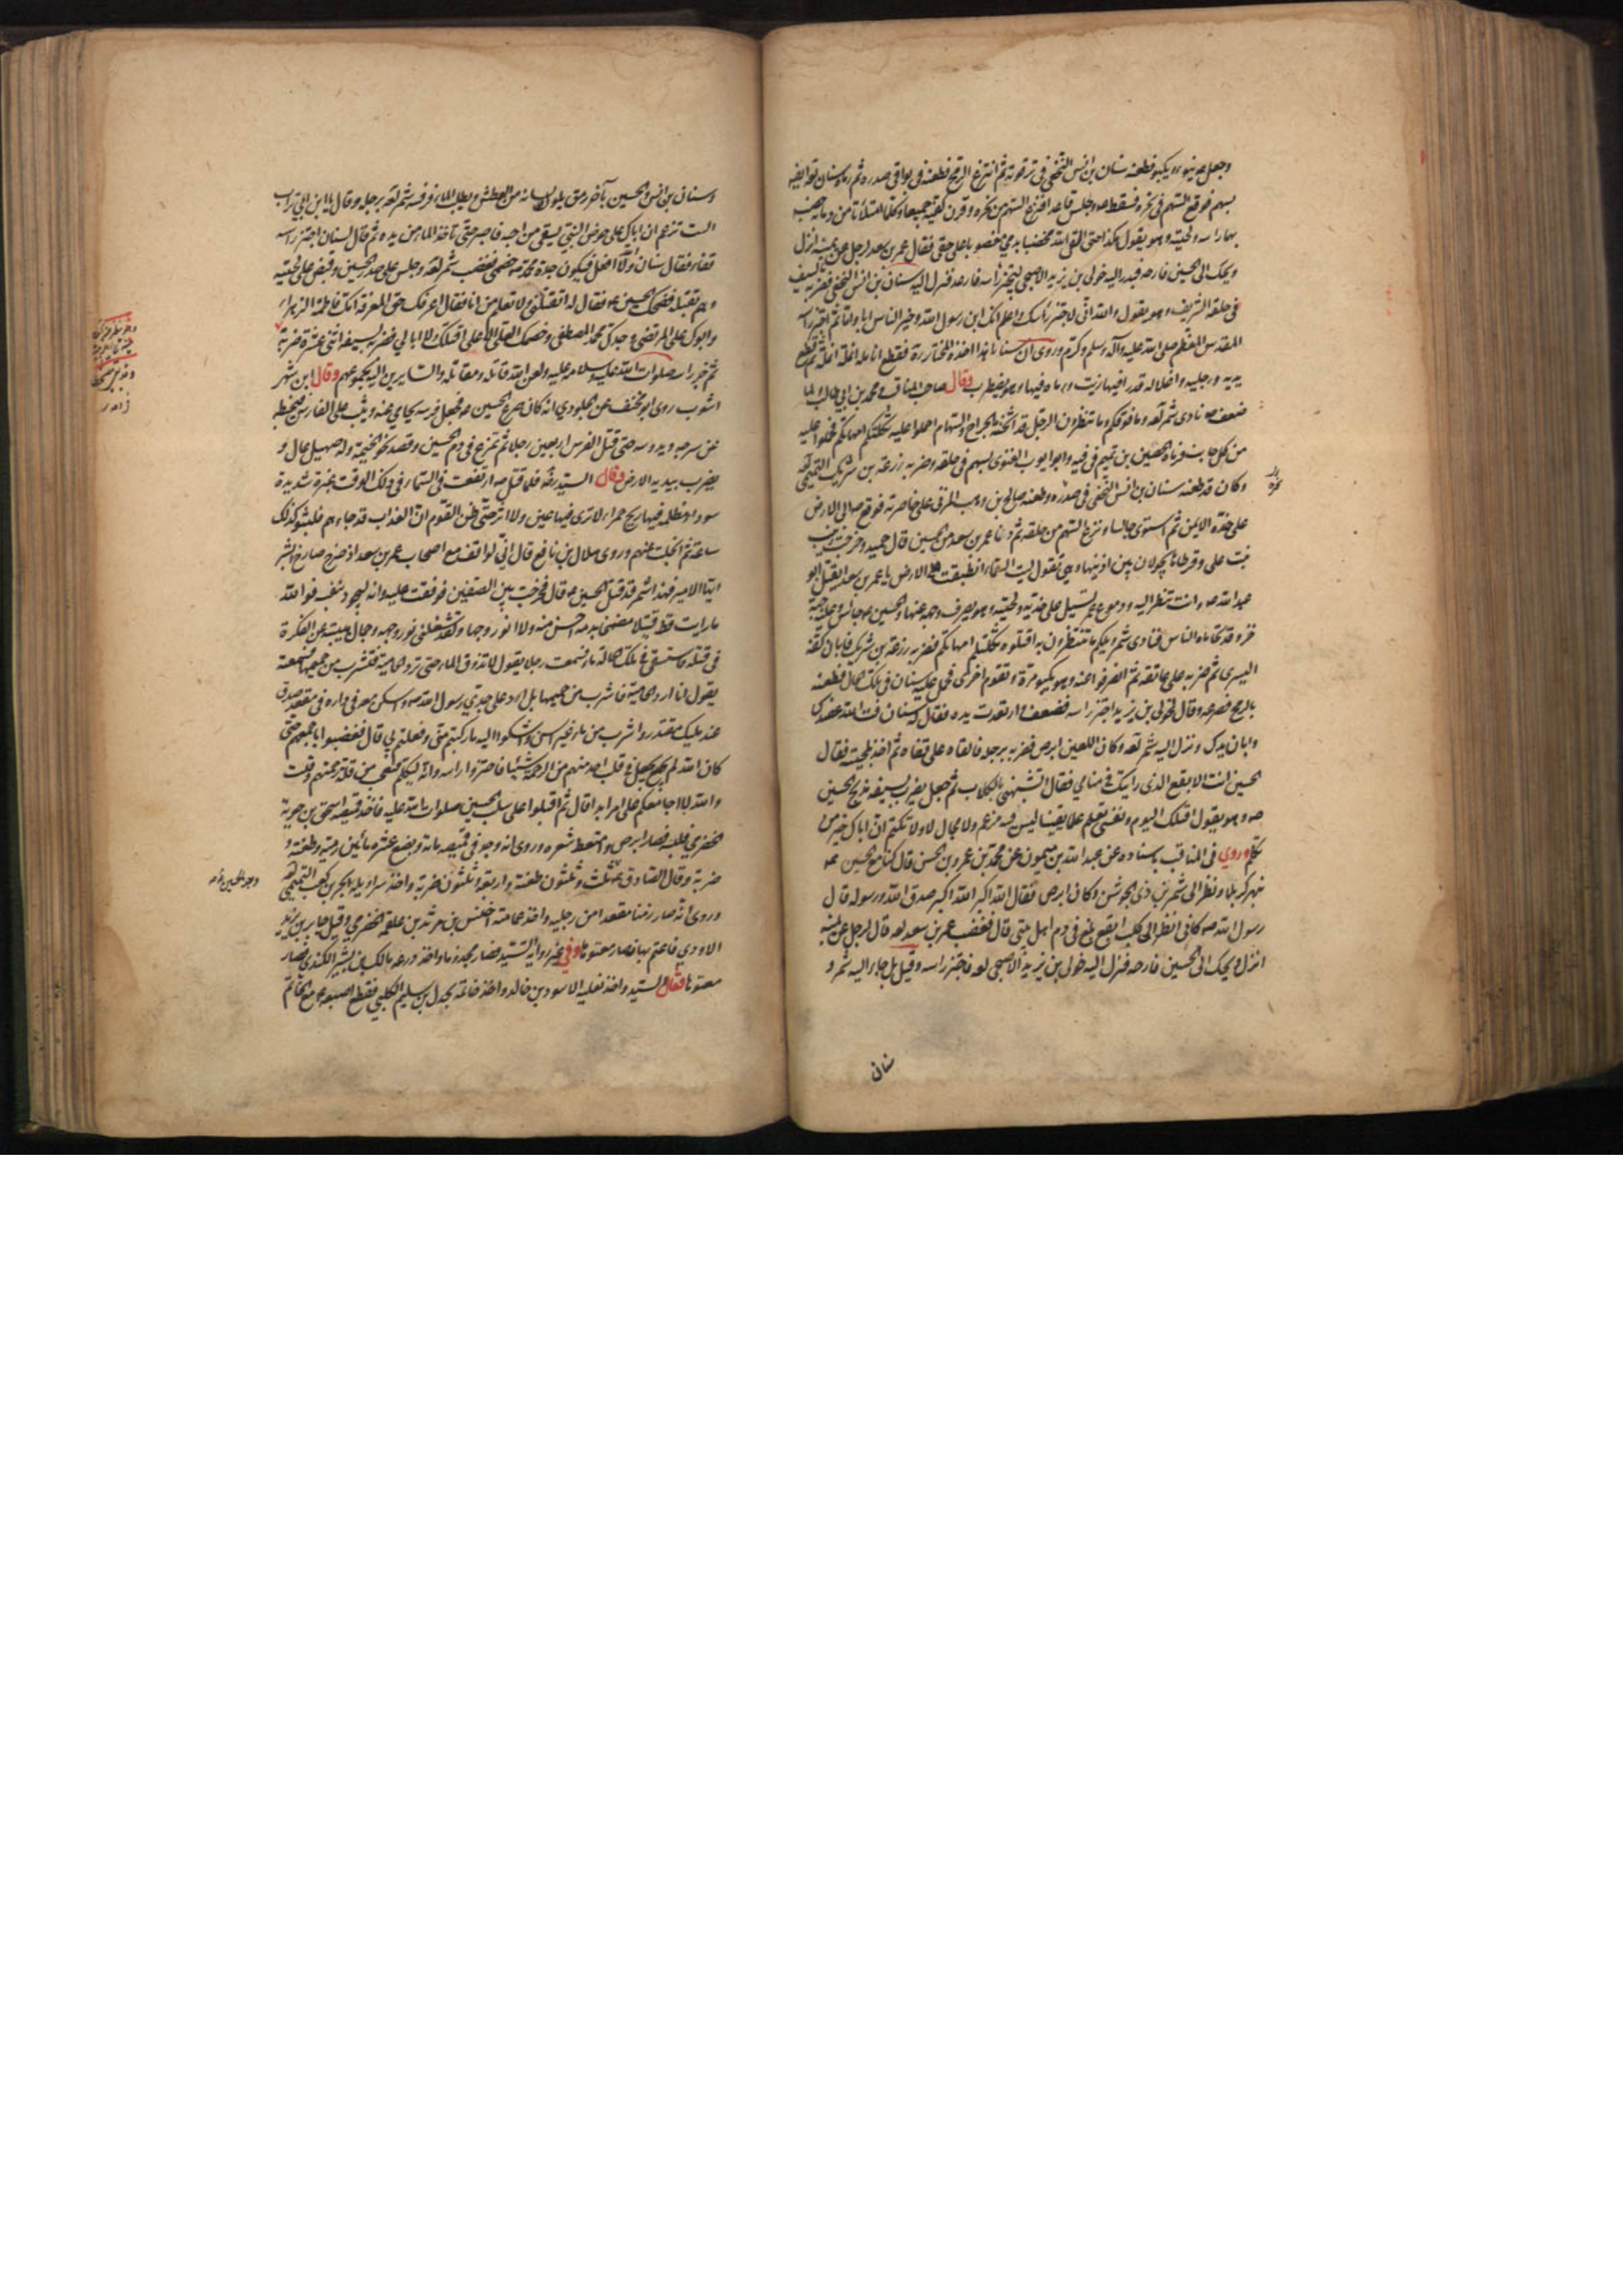 وجعل ع ينوء ويكبو فطعنه سنان بن انس النخعي في ترقوته ثم انتزع الرمح فطعنه في بواني صدره ثم رماه سنان لع ايضا
بسهم فوقع السهم في نحره فسقط ع وجلس قاعدا فنزع السهم من نحره وقرن كفيه جميعا وكلما امتلأتا من دمائه خضب
بهما راسه ولحيته وهو يقول هكذا حتى القى الله مخضبا بدمي مغصوبا على حقي فقال عمر بن سعد لرجل عن يمينه انزل
ويحك الى الحسين فارحه فبدر اليه خولي بن يزيد الاصبحي ليحتز راسه فارعد فنزل اليه سنان بن انس النخعي فضربه بالسيف
في حلقه الشريف وهو يقول والله اني لاجتز راسك واعلم انك ابن رسول الله وخير الناس ابا واما ثم اجتز راسه
المقدس المعظم صلى الله عليه وآله وسلم وكرم وروى ان سنانا هذا اخذه المختار رة فقطع انامله انملة انملة ثم قطع
يديه ورجليه واغلا له قدرا فيها زيت ورماه فيها وهو يضطرب وقال صاحب المناقب ومحمد بن ابي طالب لما
ضعف ع نادى شمر لعه ما وقوفكم وما تنتظرون بالرجل قد اثخنته الجراح والسهام احملوا عليه ثكلتكم امهاتكم فحملوا عليه
من كل جانب فرماه الحصين بن تميم في فيه وابو ايوب الغنوي بسهم في حلقه وضربه زرعة بن شريك التميمي لعه
وكان قد طعنه سنان بن انس النخعي في صدره وطعنه صالح بن وهب المزني على خاصرته فوقع ص الى الارض
على خده الايمن ثم استوى جالسا ونزع السهم من حلقه ثم دنا عمر بن سعد من الحسين قال حميد وخرجت زينب
بنت علي وقرطاها يجولان بين اذنيها وهي تقول ليت السماء انطبقت على الارض يا عمر بن سعد ايقتل ابو
عبد الله ص وانت تنظر اليه ودموع عمر تسيل على خديه ولحيته وهو يصرف وجهه عنها والحسين ع جالس وعليه جبة
خز وقد تحاماه الناس فنادى شمر ويلكم ما تنتظرون به اقتلوه ثكلتكم امهاتكم فضربه زرعة بن شريك فابان كفه
اليسرى ثم ضربه على عاتقه ثم انصرفوا عنه وهو يكبو مرة ويقوم اخرى فحمل عليه سنان في تلك الحال فطعنه
بالرمح فصرعه وقال لخولي بن يزيد اجتز راسه فضعف وارتعدت يده فقال له سنان فت الله عضدك
وابان يدك ونزل اليه شمر لعه وكان اللعين ابرص فضربه برجله فالقاه على قفاه ثم اخذ بلحيته فقال
الحسين انت الابقع الذي رايتك في منامي فقال اتشبهني بالكلاب ثم جعل يضرب بسيفه مذبح الحسين
ص وهو يقول اقتلك اليوم ونفسي تعلم علما يقينا ليس فيه مزعم ولا مجال لا ولا تكتم ان اباك خير من
تكلم وروي في المناقب باسناده عن عبد الله بن ميمون عن محمد بن عمرو بن الحسن قال كنا مع الحسين عه
بنهر كربلا ونظر الى شمر بن ذي الجوشن وكان ابرص فقال الله اكبر الله اكبر صدق الله ورسوله قال
رسول الله ص كاني انظر الى كلب ابقع يلغ في دم اهل بيتي قال فغضب عمر بن سعد لعه قال لرجل عن يمينه
انزل ويحك الى الحسين فارحه فنزل اليه خولي بن يزيد الاصبحي لعه فاجتز راسه وقيل بل جاء اليه شمر و
سنان
وسنان بن انس والحسين بآخر رمق يلوك لسانه من العطش ويطلب الماء فرفسه شمر لعه برجله وقال يا ابن ابي تراب
الست تزعم ان اباك على حوض النبي يسقي من احبه فاصبر حتى تاخذ الماء من يده ثم قال لسنان اجتز راسه
قفاء فقال سنان والله لا افعل فيكون جده محمد ص خصمي فغضب شمر لعه وجلس على صدر الحسين وقبض على لحيته
وهم بقتله فضحك الحسين ع فقال له اتقتلني ولا تعلم من انا فقال اعرفك حق المعرفة امك فاطمة الزهراء
وابوك علي المرتضى وجدك محمد المصطفى وخصمك العلي الاعلى اقتلك ولا ابالي فضربه بسيفه اثنتي عشرة ضربة
ثم حز راسه صلوات الله عليه وسلامه عليه ولعن الله قاتله ومقاتله والسايرين اليه بجموعهم وقال ابن شهر
اشوب روى ابو مخنف عن الجلودي انه كان صرع الحسين ع فجعل فرسه يحامي عنه ويثب على الفارس فيخبطه
عن سرجه ويدوسه حتى قتل الفرس اربعين رجلا ثم تمرغ في دم الحسين وقصد نحو الخيمة وله صهيل عال و
يضرب بيديه الارض وقال السيد رضه فلما قتل ص ارتفعت في السماء في ذلك الوقت غبرة شديدة
سوداء مظلمه فيها ريح حمراء لا ترى فيها عين ولا اثر حتى ظن القوم ان العذاب قد جاءهم فلبثوا كذلك
ساعة ثم انجلت عنهم وروى هلال بن نافع قال اني لواقف مع اصحاب عمر بن سعد اذ صرخ صارخ ابشر
ايها الامير فهذا شمر قد قتل الحسين ع قال فخرجت بين الصفين فوقفت عليه وانه ليجود بنفسه فوالله
ما رايت قط قتيلا مضمخا بدمه احسن منه ولا انور وجها ولقد شغلني نور وجهه وجمال هيبته عن الفكرة
في قتله فاستسقى في تلك الحالة ماء فسمعت رجلا يقول لا تذوق الماء حتى ترد الحامية فتشرب من حميمها فسمعته
يقول انا ارد الحامية فاشرب من حميمها بل ارد على جدي رسول الله ص واسكن معه في داره في مقعد صدق
عند مليك مقتدر واشرب من ماء غير اسن واشكوا اليه ما ركبتم مني وفعلتم بي قال فغضبوا باجمعهم حتى
كان الله لم يجعل في قلب احد منهم من الرحمة شيئا فاحتزوا راسه وانه ليكلمهم فتعجبت من قلة رحمتهم وقلت
والله لا اجامعكم على امر ابدا قال ثم اقبلوا على سلب الحسين صلوات الله عليه فاخذ قميصه اسحق بن حوية
الحضرمي فلبسه فصار ابرص وامتعط شعره وروى انه وجد في قميصه مائة وبضع عشره ما بين رمية وطعنة و
ضربة وقال الصادق ع ثلث وثلثون طعنة واربعة وثلثون ضربة واخذ سراويله ابجر بن كعب التميمي لعه
وروى انه صار زمنا مقعدا من رجليه واخذ عمامته اخنس بن مرثد بن علقمه الحضرمي وقيل جابر بن يزيد
الاودي فاعتم بها فصار معتوها وفي غير رواية السيد فصار مجذوما واخذ درعه مالك بن بشير الكندي فصار
معتوها فقال السيد واخذ نعليه الاسود بن خالد واخذ خاتمه بجدل بن سليم الكلبي فقطع اصبعه ع مع الخاتم